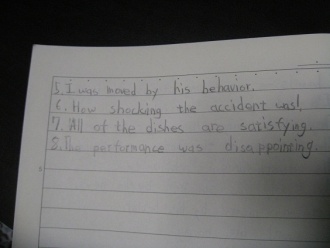 5. I was moved by his behavior.
6. How shocking the accident was!
7. All of the dishes are satisfying.
8. The performance was disappointing.